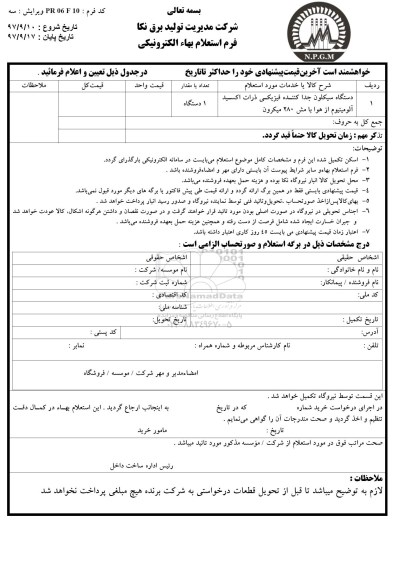 بسمه تعالی
کد فرم : PR 06 F 10 ویرایش : سه
شرکت مدیریت تولید برق نکا
تاریخ شروع : ۹۷/۹/۱۰
تاریخ پایان : ۹۷/۹/۱۷
فرم استعلام بهاء الکترونیکی
N.P.G.M
خواهشمند است آخرین قیمت پیشنهادی خود را حداکثر تا تاریخ درجدول ذیل تعیین و اعلام فرمائید .
ردیف شرح کالا یا خدمات مورد استعلام تعداد یا مقدار قیمت واحد قیمت کل ملاحظات
۱ دستگاه سیکلون جدا کننده فیزیکی ذرات اکسید آلومینیوم از هوا با مش ۲۸۰ میکرون ۱ دستگاه
جمع کل به حروف:
تذکر مهم : زمان تحویل کالا حتماً قید گردد.
۱- اسکن تکمیل شده این فرم و مشخصات کامل موضوع استعلام می‌بایست در سامانه الکترونیکی بارگذاری گردد.
۲- فرم استعلام بهاء و سایر شرایط پیوست آن بایستی دارای مهر و امضاء فروشنده باشد .
۳- محل تحویل کالا انبار نیروگاه نکا بوده و هزینه حمل بعهده فروشنده می‌باشد.
۴- قیمت پیشنهادی بایستی فقط در همین برگه ارائه گردد و ارائه قیمت طی پیش فاکتور یا برگه های دیگر مورد قبول نمی‌باشد.
۵- بهای کالا پس از اخذ صورتحساب ،تحویل و تائید فنی توسط نماینده نیروگاه و صدور رسید انبار پرداخت خواهد شد .
۶- اجناس تحویلی در نیروگاه در صورت اصلی بودن مورد تائید قرار خواهند گرفت و در صورت نقصان و داشتن هرگونه اشکال، کالا عودت خواهد شد
و جبران خسارت ایجاد شده شامل فرصت از دست رفته و همچنین هزینه حمل بعهده فروشنده می‌باشد .
۷- اعتبار زمان قیمت پیشنهادی می بایست ۴۵ روز کاری اعتبار داشته باشد.
درج مشخصات ذیل در برگه استعلام و صورتحساب الزامی است :
اشخاص حقیقی اشخاص حقوقی
نام و نام خانوادگی : نام موسسه/ شرکت :
نام فروشنده / پیمانکار: شماره ثبت شرکت :
کد ملی: کد اقتصادی :
شناسه ملی:
تاریخ تکمیل : تاریخ تحویل:
آدرس: کد پستی :
تلفن : نام کارشناس مربوطه و شماره همراه : نمابر :
امضاءمدیر و مهر شرکت / موسسه / فروشگاه
این قسمت توسط نیروگاه تکمیل خواهد شد .
در اجرای درخواست خرید شماره که در تاریخ به اینجانب ارجاع گردید . این استعلام بهاء در کمال دقت
تنظیم و اخذ گردید و صحت مندرجات آن را گواهی می‌نمایم .
تاریخ : مامور خرید
صحت مراتب فوق در مورد استعلام از شرکت / مؤسسه مذکور مورد تائید میباشد .
رئیس اداره ساخت داخل
ملاحظات :
لازم به توضیح میباشد تا قبل از تحویل قطعات درخواستی به شرکت برنده هیچ مبلغی پرداخت نخواهد شد